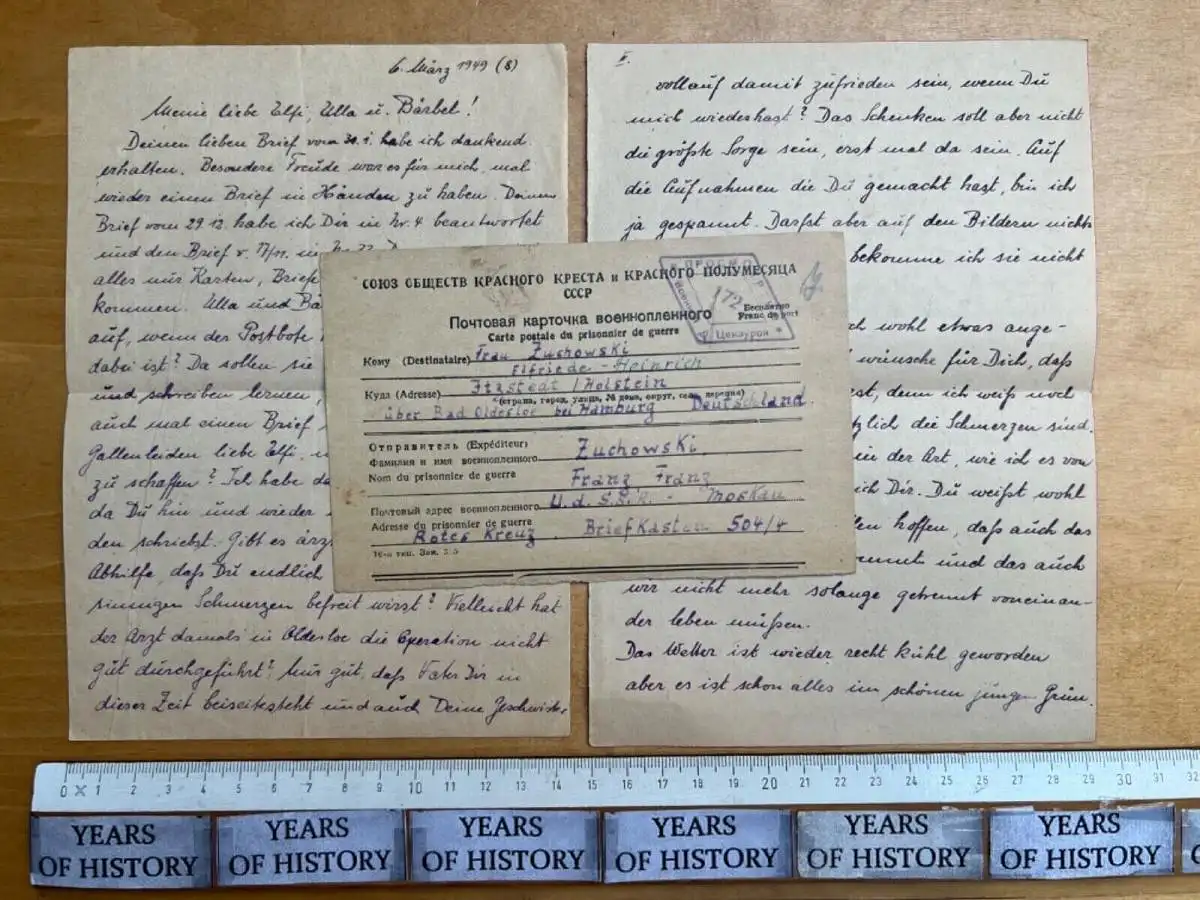 6. März 1949 (8)
Meine liebe Elfi, Ulla u. Bärbel!
Deinen lieben Brief vom 30.1. habe ich dankend
erhalten. Besondere Freude war es für mich, mal
wieder einen Brief in Händen zu haben. Deinen
Brief vom 29.12. habe ich Dir in Nr. 4 beantwortet
und den Brief v.
alles nur Karten, Brief
kommen. Ulla und Bä
auf, wenn der Postbote
dabei ist? Da sollen sie
und schreiben lernen,
auch mal einen Brief
Gallenleiden liebe Elfi,
zu schaffen? Ich habe
da Du hin und wieder
den schriebst. Gibt es
Abhilfe, daß Du endlich
sinnigen Schmerzen befreit wirst? Vielleicht hat
der Arzt damals in Oldesloe die Operation nicht
gut durchgeführt? Nur gut, daß Vater Dir in
dieser Zeit beiseitesteht und auch Deine Geschwister
II.
vollauf damit zufrieden sein, wenn Du
mich wiederhast? Das Schenken soll aber nicht
die größte Sorge sein, erst mal da sein. Auf
die Aufnahmen die Du gemacht hast, bin ich
ja gespannt. Darfst aber auf den Bildern nichts
bekomme ich sie nicht
wohl etwas ange-
wünsche für Dich, daß
denn ich weiß noch
die Schmerzen sind.
in der Art, wie ich es von
ich Dir. Du weißt wohl
hoffen, daß auch das
und das auch
wir nicht mehr solange getrennt voneinan-
der leben müßen.
Das Wetter ist wieder recht kühl geworden
aber es ist schon alles im schönen jungen Grün.
СОЮЗ ОБЩЕСТВ КРАСНОГО КРЕСТА и КРАСНОГО ПОЛУМЕСЯЦА
СССР
Почтовая карточка военнопленного
Carte postale du prisonnier de guerre
Бесплатно
Franc de port
172
Кому (Destinataire) Frau Zuchowski
Elfriede - Heinrich
Куда (Adresse) Itzstedt / Holstein
(страна, город, улица, № дома, округ, село, деревня)
über Bad Oldesloe bei Hamburg Deutschland.
Отправитель (Expéditeur)
Фамилия и имя военнопленного Zuchowski,
Nom du prisonnier de guerre Franz, Franz
Почтовый адрес военнопленного U.d.S.S.R. - Moskau
Adresse du prisonnier de guerre
Rotes Kreuz. Briefkasten 504/4
16-я тип. Зак.
0 1 2 3 4 5 6 7 8 9 10 11 12 13 14 15 16 17 18 19 20 21 22 23 24 25 26 27 28 29 30 31 32
YEARS OF HISTORY YEARS OF HISTORY YEARS OF HISTORY YEARS OF HISTORY YEARS OF HISTORY YEARS OF HISTORY